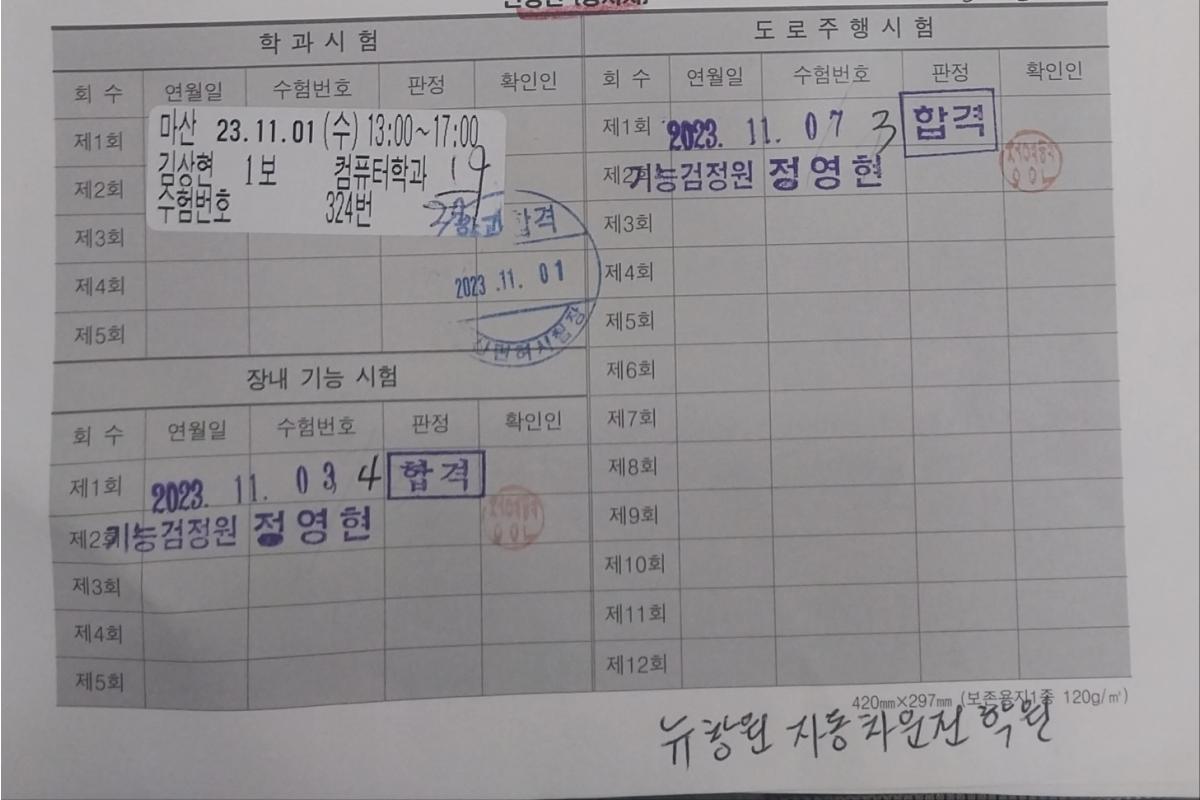 학 과 시 험
회 수 연월일 수험번호 판정 확인인
제1회
마산 23.11.01 (수) 13:00~17:00
김상현 1보 컴퓨터학과 19
제2회
수험번호 324번
제3회
학과 합격
제4회
2023 .11. 01
제5회
장내 기능 시험
회 수 연월일 수험번호 판정 확인인
제1회 2023. 11. 03, 4 합격
제2회 기능검정원 정영현
제3회
제4회
제5회
도 로 주 행 시 험
회 수 연월일 수험번호 판정 확인인
제1회 2023. 11. 07 3 합격
제2회 기능검정원 정영현
제3회
제4회
제5회
제6회
제7회
제8회
제9회
제10회
제11회
제12회
420㎜×297㎜ (보존용지1종 120g/㎡)
뉴창원 자동차운전 학원